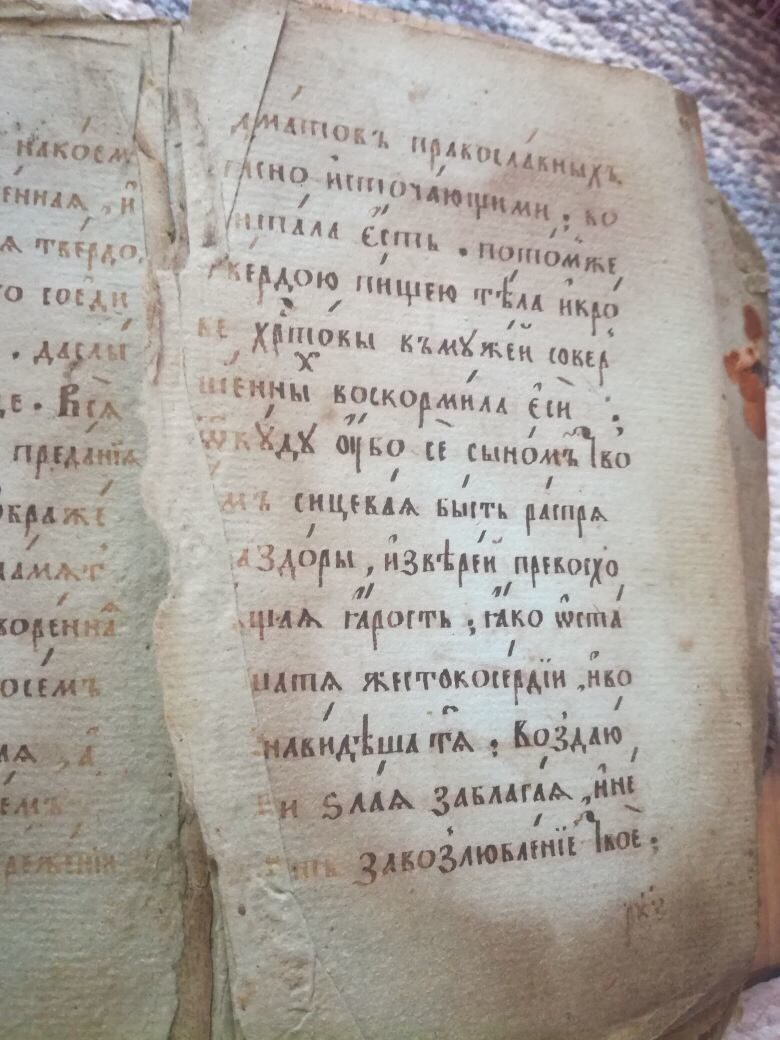 накоем
енная, и
я твердо
го соеди
. даслы
це. Вся
преданїѧ
ображе
памят
воренна
осемъ
ая, а
ем
режени
дматовъ православныхъ
ясно источающими; во
питала єсть. потомже
твердою пищею тѣла икро
ве хрт҃овы въмꙋжей совер
шенны воскормила єси:
ѿкꙋдꙋ ᲂубо се сыномъ Тво
имъ сицевая бысть распря
раздоры, извѣрей превосхо
ящая ꙗрость; ꙗко ѡста
шатя жестокосердїи, иво
знавидѣша тѧ: Воздаю
ще ти ѕлаѧ заблагаѧ, ине
завозлюбленїе Твое;